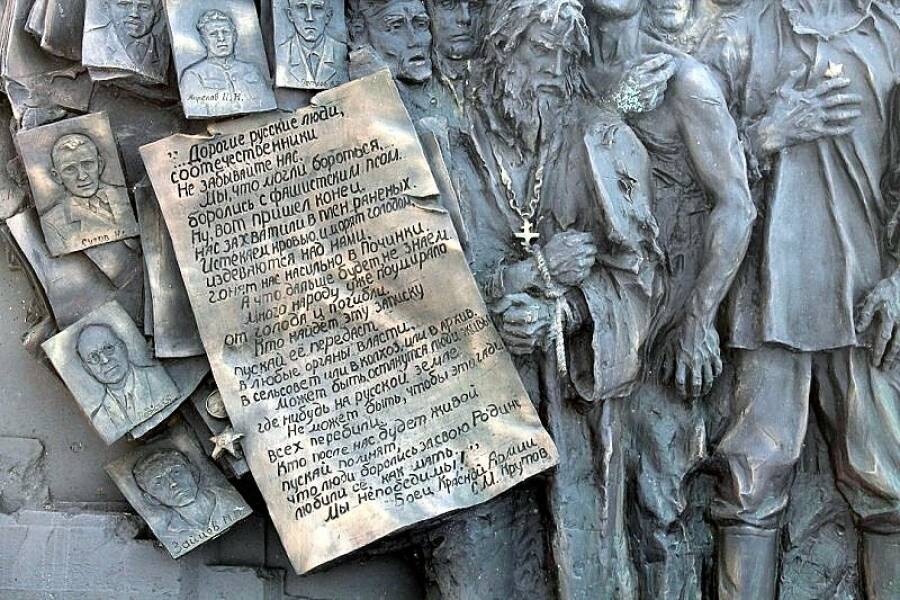 Журелав И.Н.
Сутов Н.
Зайцов Н.
„Дорогие русские люди,
соотечественники
Не забывайте нас.
Мы что могли бороться,
боролись с фашистским псом.
Ну, вот пришел конец.
Нас захватили в плен раненых.
Истекаем кровью и морят голодом,
издевются над нами.
гонят нас насильно в Починки.
А что дальше будет не знаем
Много народу уже поумирало
от голода и погибли.
Кто найдет эту записку
пускай её передаст
в любые органы власти,
в сельсовет или в колхоз, или в архив.
Может быть, останутся люди живы
где нибудь на русской земле.
Не может быть, чтобы эти гады
всех перебили.
Кто после нас будет живой
пускай помнят,
что люди боролись за свою Родину
любили её, как мать.
Мы непобедимы!"
Боец Красной Армии
С.М. Крутов